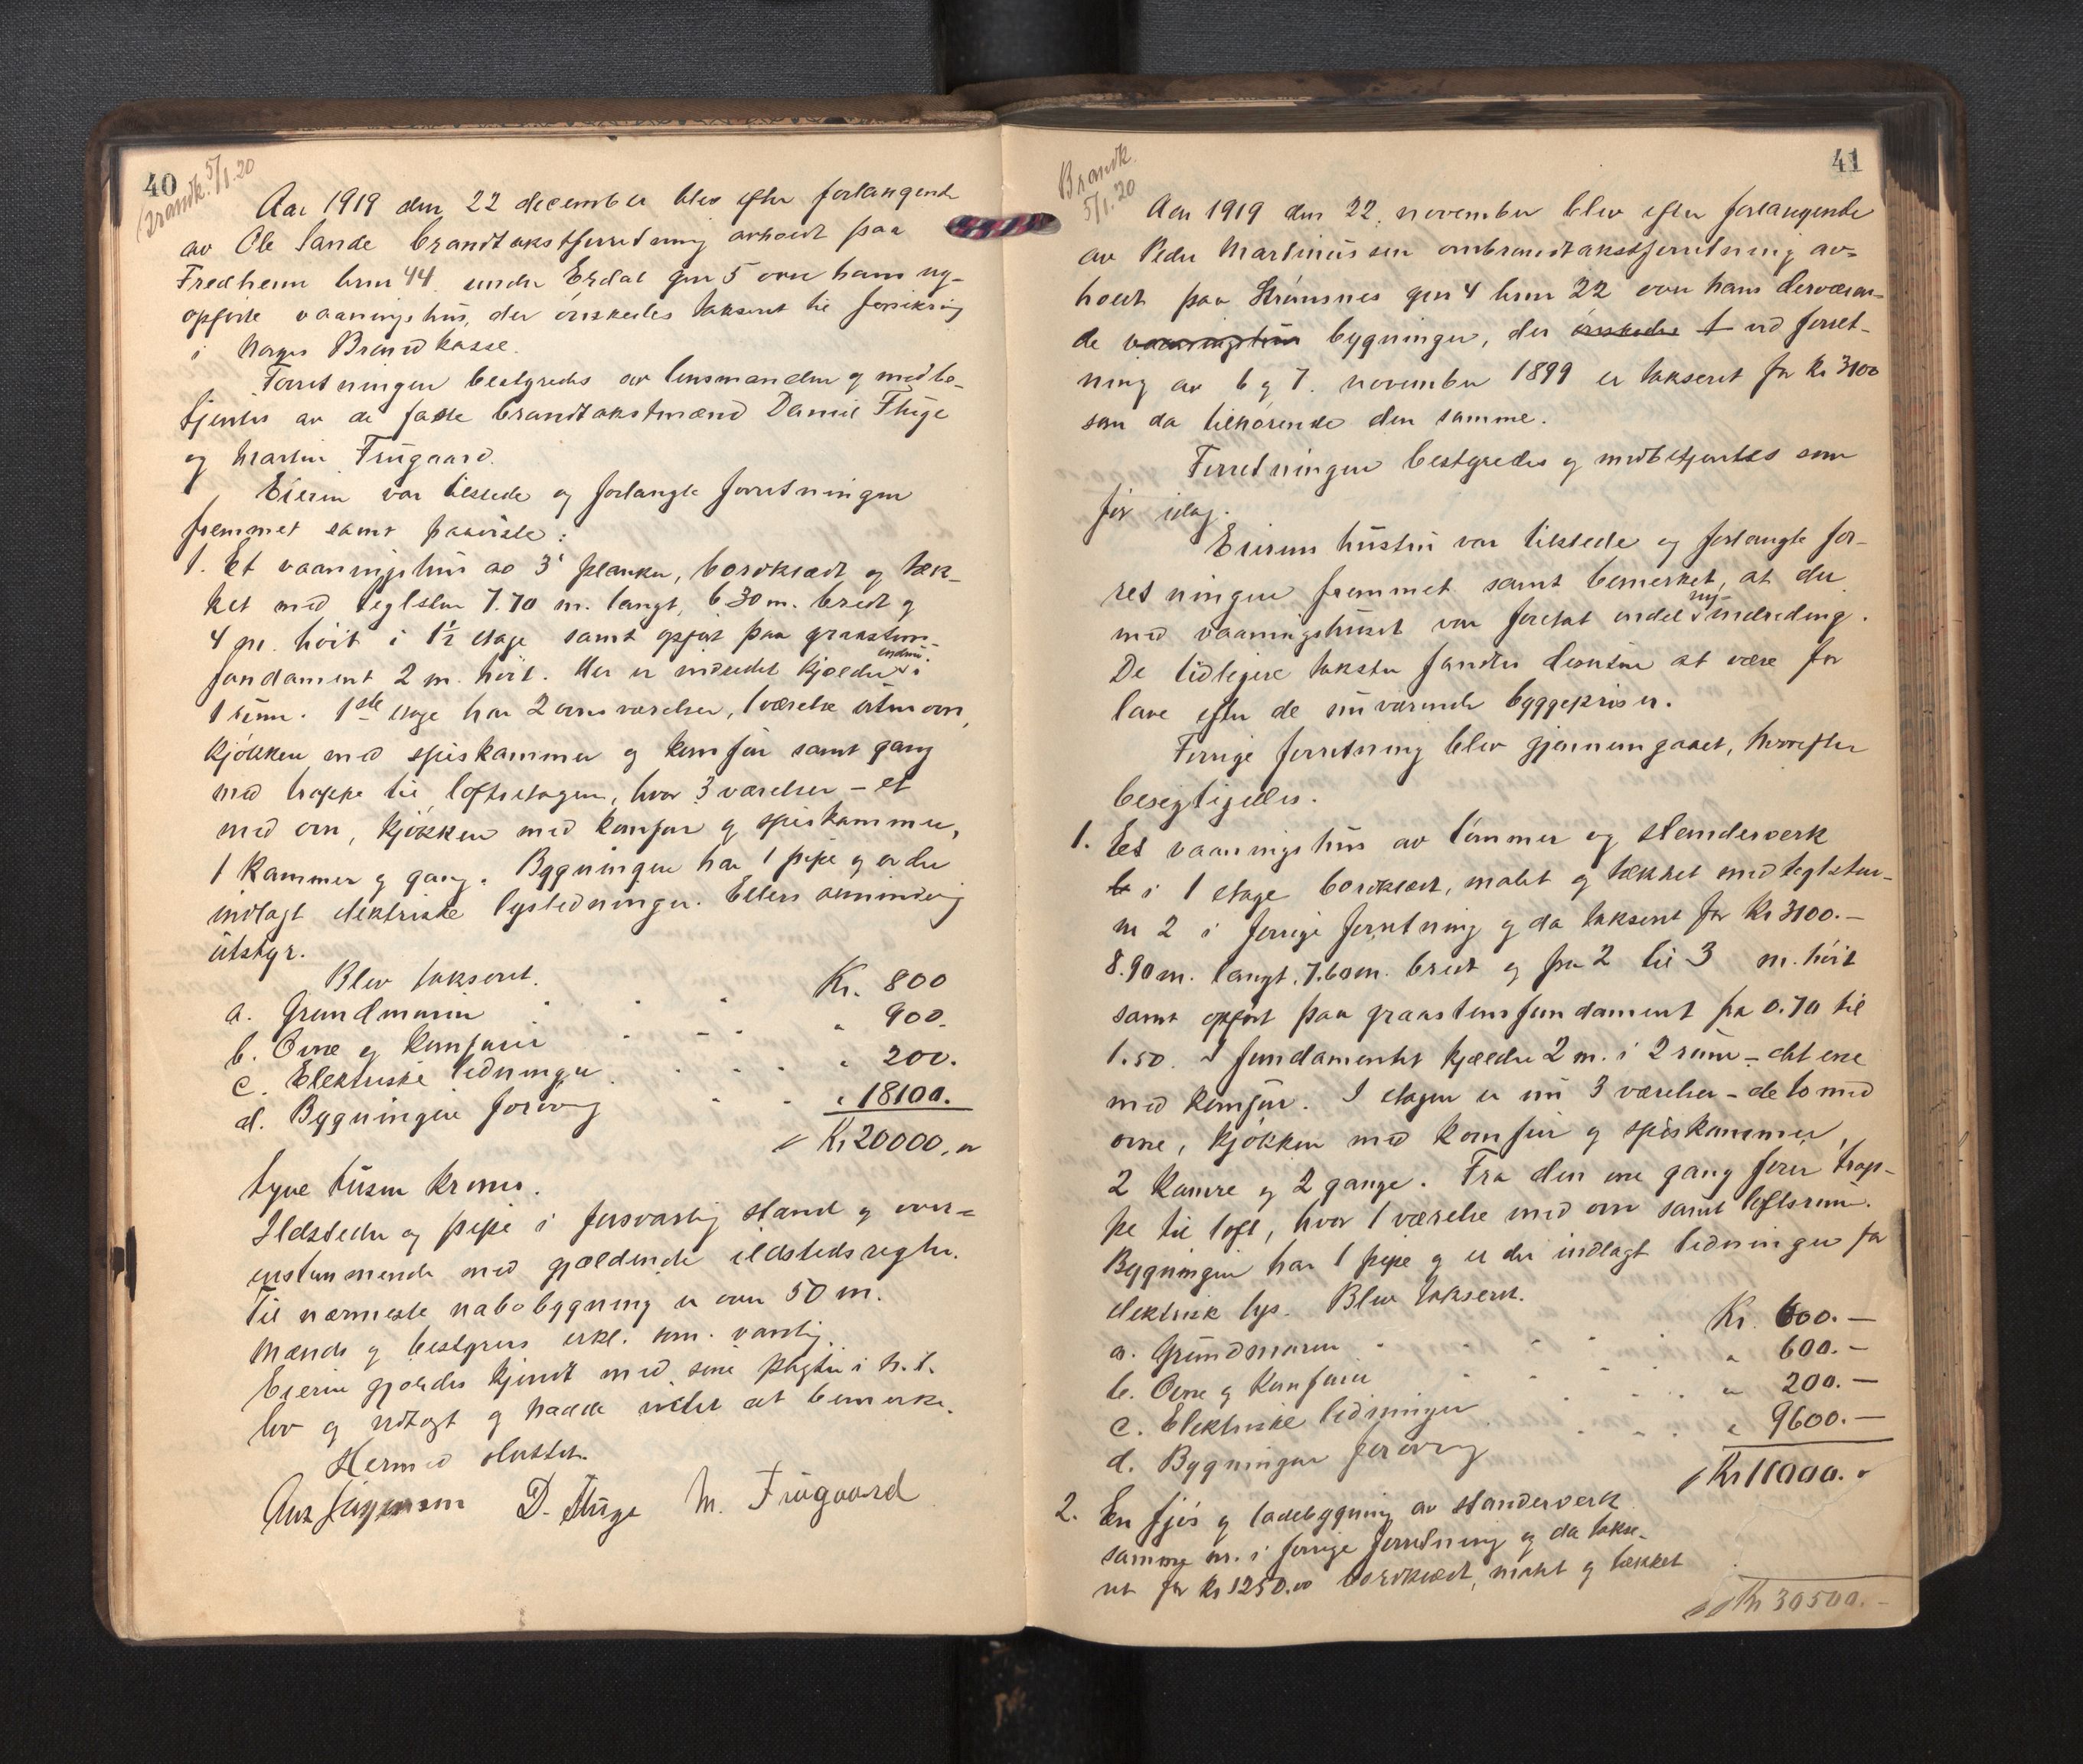 40
Brandk. 5/1.20
Aar 1919 den 22 december blev efter forlangende
av Ole Sande brandtakstforretning avholdt paa
Fredheim brnr 44 under Erdal gnr 5 over hans ny-
opførte vaaningshus, der ønskedes takseret til forsikring
i Norges Brandkasse.
Forretningen bestyredes av lensmanden og medbe-
tjentes av de faste brandtakstmænd Daniel Fluge
og Martin Frugaard.
Eieren var tilstede og forlangte forretningen
fremmet samt paaviste:
1. Et vaaningshus av 3" planker, bordklædt og tæk-
ket med teglsten 7.70 m. langt, 6 30 m. bredt og
4 m. høit i 1½ etage samt opført paa graastens-
fundament 2 m. høit. Her er indredet kjelder i
1 rum. 1ste etage har 2 ovnsværelser, 1 værelse uten ovn,
kjøkken med spiskammer og komfur samt gang
med trappe til loftsetagen, hvor 3 værelser – et
med ovn, kjøkken med komfur og spiskammer,
1 kammer og gang. Bygningen har 1 pipe og er der
indlagt elektriske lysledninger. Ellers almindelig
utstyr.
Blev takseret.
a. Grundmuren Kr. 800
b. Ovne og komfurer " 900.
c. Elektriske ledninger " 200.
d. Bygningen forøvrig " 18100.
Kr 20000, er
tyve tusen kroner.
Ildsteder og pipe i forsvarlig stand og over-
ensstemmende med gjældende ildstedsregler.
Til nærmeste nabobygning er over 50 m.
Mænds og bestyrers erkl. som vanlig.
Eieren gjordes kjendt med sine pligter i h. t.
lov og vedtægt og hadde intet at bemerke.
Hermed sluttet.
D. Fluge M. Frugaard
41
Brandk.
5/1.20
Aar 1919 den 22. november blev efter forlangende
av Peder Martinussen ombrandtakstforretning av-
holdt paa Strømsnes gnr 4 brnr 22 over hans derværen-
de vaaningshus bygninger, der ønskedes t ved forret-
ning av 6 og 7. november 1899 er takseret for Kr 3100
som da tilhørende den samme.
Forretningen bestyredes og medbetjentes som
før idag.
Eierens hustru var tilstede og forlangte for-
retningen fremmet samt bemerket, at der
med vaaningshuset var foretat endel ny-indreding.
De tidligere takster fandtes desuten at være for
lave efter de nuværende byggepriser.
Forrige forretning blev gjennemgaaet, hvorefter
besigtigedes.
1. Et vaaningshus av tømmer og stenderverk
i 1 etage bordklædt, malt og tækket med teglsten –
nr 2 i forrige forretning og da takseret for Kr 3100.–
8.90 m. langt, 7.60 m. bredt og fra 2 til 3 m. høit
samt opført paa graastensfundament fra 0.70 til
1.50. I fundamentet kjælder 2 m. i 2 rum – det ene
med komfur. I etagen er nu 3 værelser – de to med
ovne, kjøkken med komfur og spiskammer,
2 kamre og 2 gange. Fra den ene gang fører trap-
pe til loft, hvor 1 værelse med ovn samt loftsrum.
Bygningen har 1 pipe og er der indlagt ledninger for
elektrisk lys. Blev takseret.
a. Grundmuren Kr. 600.–
b. Ovne og komfurer " 600.–
c. Elektriske ledninger " 200.–
d. Bygningen forøvrig " 9600.–
Kr 11000.
2. En fjøs og ladebygning av stenderverk
samme nr. i forrige forretning og da takse-
ret for Kr 1250.00 bordklædt, malt og tækket
Kr 30500.–